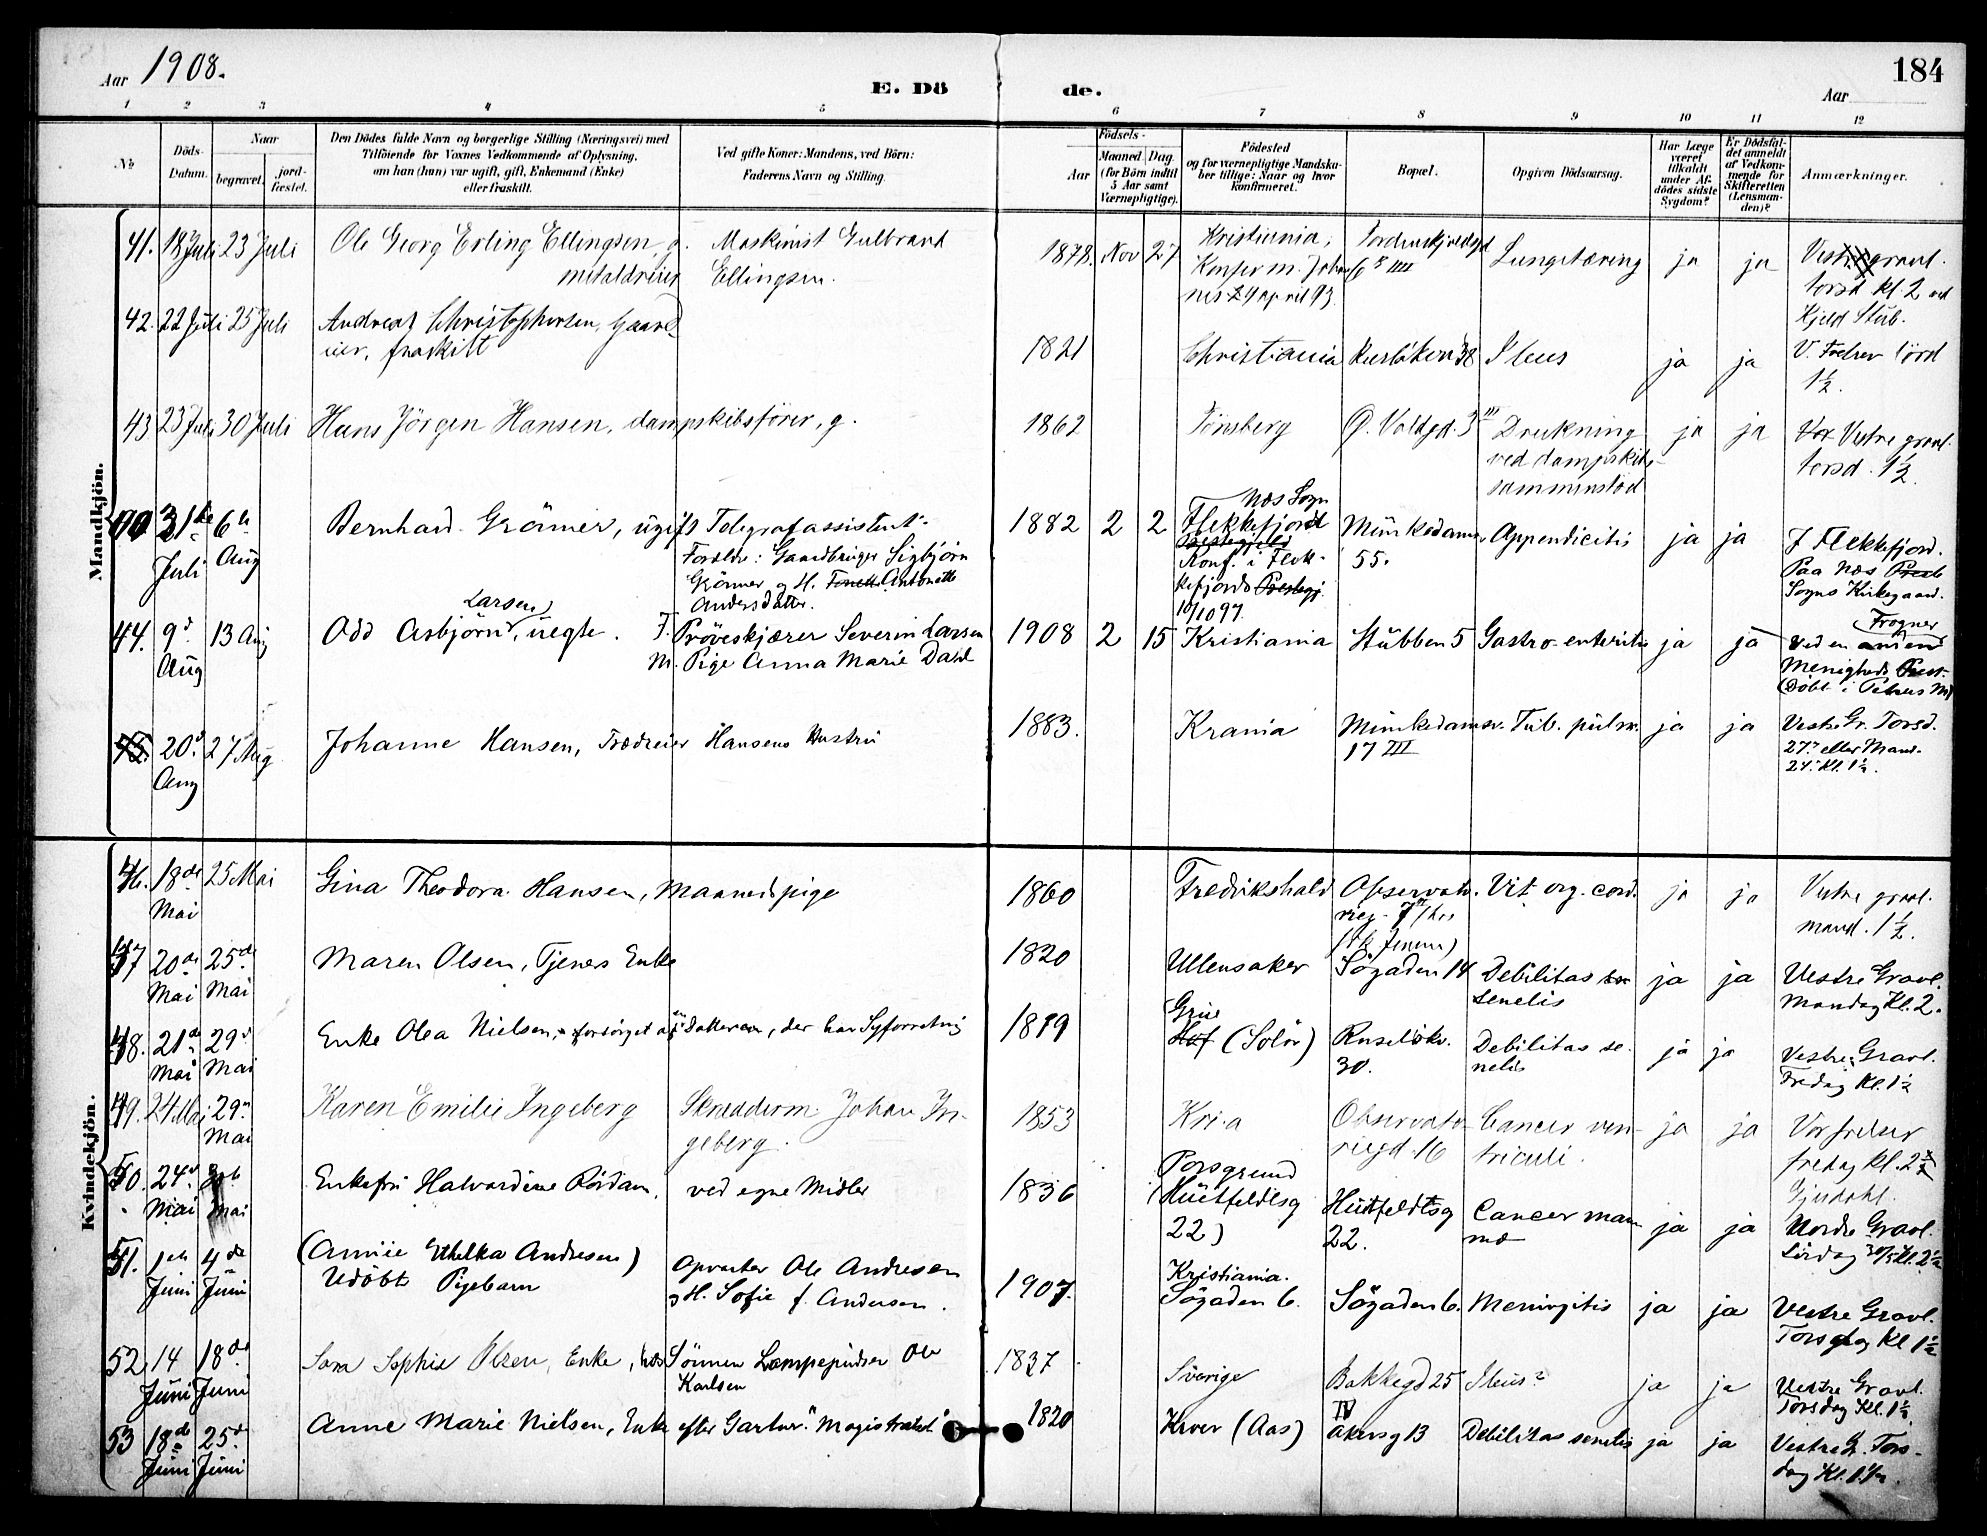 Aar 1908.
E. Dö
de.
184
Aar
1 2 3 4 5 6 7 8 9 10 11 12
No
Döds-
Datum.
Naar
begravet.
jord-
fæstet.
Den Dödes fulde Navn og borgerlige Stilling (Næringsvei) med
Tilföiende for Voxnes Vedkommende af Oplysning,
om han (hun) var ugift, gift, Enkemand (Enke)
eller fraskilt.
Ved gifte Koner: Mandens, ved Börn:
Faderens Navn og Stilling.
Födsels-
Aar
Maaned. Dag.
(for Börn indtil
5 Aar samt
Værnepligtige).
Födested
og for værnepligtige Mandska-
ber tillige: Naar og hvor
konfirmeret.
Bopæl.
Opgiven Dödsaarsag.
Har Læge
været
tilkaldt
under Af-
dödes sidste
Sygdom?
Er Dödsfal-
det anmeldt
af Vedkom-
mende for
Skifteretten
(Lensman-
den)?
Anmærkninger.
Mandkjön.
41. 18 Juli 23 Juli Ole Georg Erling Ellingsen, g. Maskinist Gulbrand 1878. Nov 27 Kristiania, Lungetæring ja ja
metaldreier Ellingsen.
torsd kl. 2 ved
Kjeld Stub.
42. 22 Juli 25 Juli Andreas Christophersen, Gaard-
eier, fraskilt 1821 Christiania 38 Ileus ja ja V. Frelser lörd
1½.
43 23 Juli 30 Juli Hans Jörgen Hansen, dampskibsförer, g. 1862 Tönsberg Ø. Voldgd. 3 III Drukning ja ja Vor Vestre gravl.
ved dampskibs- torsd. 1½
sammenstöd
Næs Sogn
31te 6te Bernhard Grönner, ugift Telegrafassistent. 1882 2 2 Flekkefjord Munkedamsv Appendicitis ja ja
Juli Aug Forældr: Gaardbruger Sigbjörn Konf. i Flek- 55. I Flekkefjord.
Grönner og H. Antonette kefjords Prestegj. Paa Næs
Andersdatter. 10/10 97. Sogns Kirkegaard.
Larsen
44. 9d 13 Aug Odd Asbjörn, uegte. F. Pröveskjærer Severin Larsen 1908 2 15 Kristiania Stubben 5 Gastro-enteritis ja ja Ved en anden Frogner
Aug M. Pige Anna Marie Dahl Menigheds Prest.
(Döbt i Petrus M)
45. 20d 27 Aug Johanne Hansen, Trædreier Hansens Hustru 1883. Krania Munkedamsv. Tub. pulm. ja ja Vestre Gr. Torsd.
Aug 17 III 27. eller Mand.
24. kl. 1½.
Kvindekjön.
46. 18de 25 Mai Gina Theodora Hansen, Maanedspige 1860 Fredrikshald Observato- Vit. org. cord. ja ja Vestre gravl.
Mai mand. 1½.
47 20de 25de Maren Olsen, Tjeners Enke 1820 Ullensaker Sögaden 14 Debilitas ja ja Vestre Gravl.
Mai Mai senelis Mandag Kl. 2.
48. 21de 29d Enke Olea Nielsen, forsörget af Datteren, der har Syforretning 1819 Grue
Hof (Solör) Ruselökv. Debilitas se- ja ja Vestre Gravl.
Mai Mai 30. nelis Fredag Kl. 1½
49. 24 Mai 29n Karen Emilie Ingeberg Skrædderm. Johan In- 1853 Kri-a Observato- Cancer ven- ja ja Vor frelser
Mai geberg. riegd. 16 triculi. fredag kl. 2½
50. 24d Enkefru Halvardine Rördam, ved egne Midler 1836 Porsgrund
Mai Mai (Huitfeldtsg Huitfeldtsg Cancer mam- ja ja Nordre Gravl.
22) 22. mæ Lördag 30/5 Kl. 2½
51. 1ste 4de (Annie Ethelka Andresen) Opvarter Ole Andresen 1907. Kristiania.
Juni Juni Udöbt Pigebarn og H. Sofie f. Andersen. Sögaden 6. Sögaden 6. Meningitis ja ja Vestre Gravl.
Torsdag Kl 1½
52. 14 18de Sara Sophie Olsen, Enke, hos Sönnen Lampepudser Ole 1837 Sverige Bakkegd 25 Ileus? ja ja Vestre Gravl.
Juni Juni Karlsen IV Torsdag Kl. 1½.
53 18de 25de Anne Marie Nielsen, Enke efter Gartner "Magistratet" 1820 Kroer (Aas) Akersg 13 Debilitas senelis ja ja Vestre Gr. Tors-
Juni Juni dag Kl. 1½.